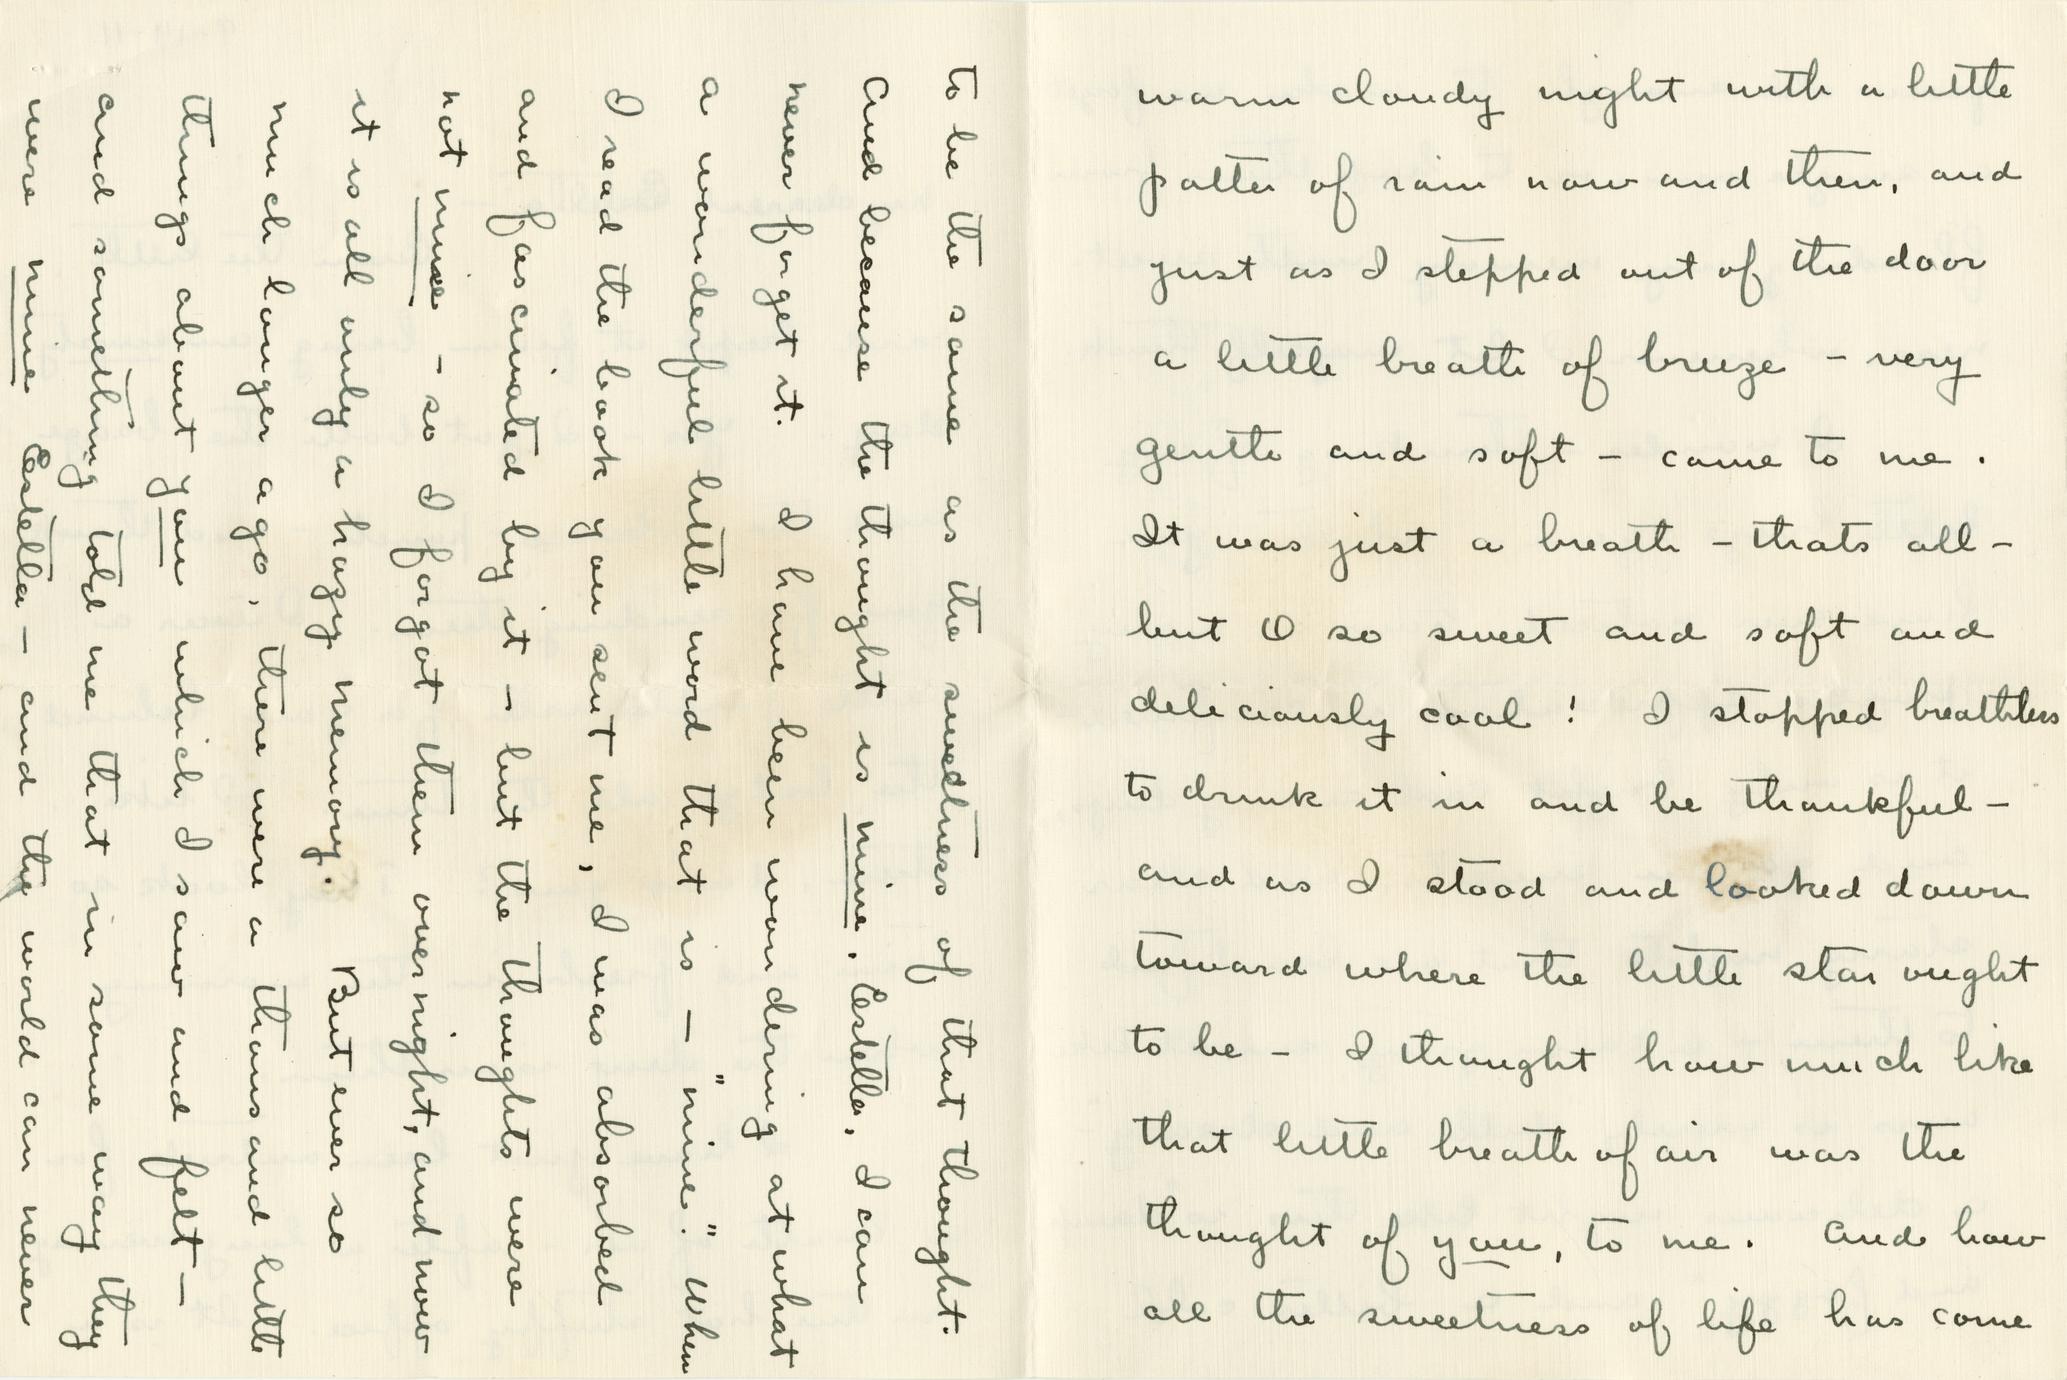 warm cloudy night with a little
patter of rain now and then, and
just as I stepped out of the door
a little breath of breeze - very
gentle and soft - came to me.
It was just a breath - thats all -
but O so sweet and soft and
deliciously cool! I stopped breathless
to drink it in and be thankful -
and as I stood and looked down
toward where the little star ought
to be - I thought how much like
that little breath of air was the
thought of you, to me. And how
all the sweetness of life has come
to be the same as the sweetness of that thought.
And because the thought is mine. Estella, I can
never forget it. I have been wondering at what
a wonderful little word that is - "mine." When
I read the book you sent me, I was absorbed
and fascinated by it - but the thoughts were
not mine - so I forgot them over night, and now
it is all only a hazy memory. But ever so
much longer ago, there were a thousand little
things about you which I saw and felt -
and something told me that in some way they
were mine Estella - and the world can never